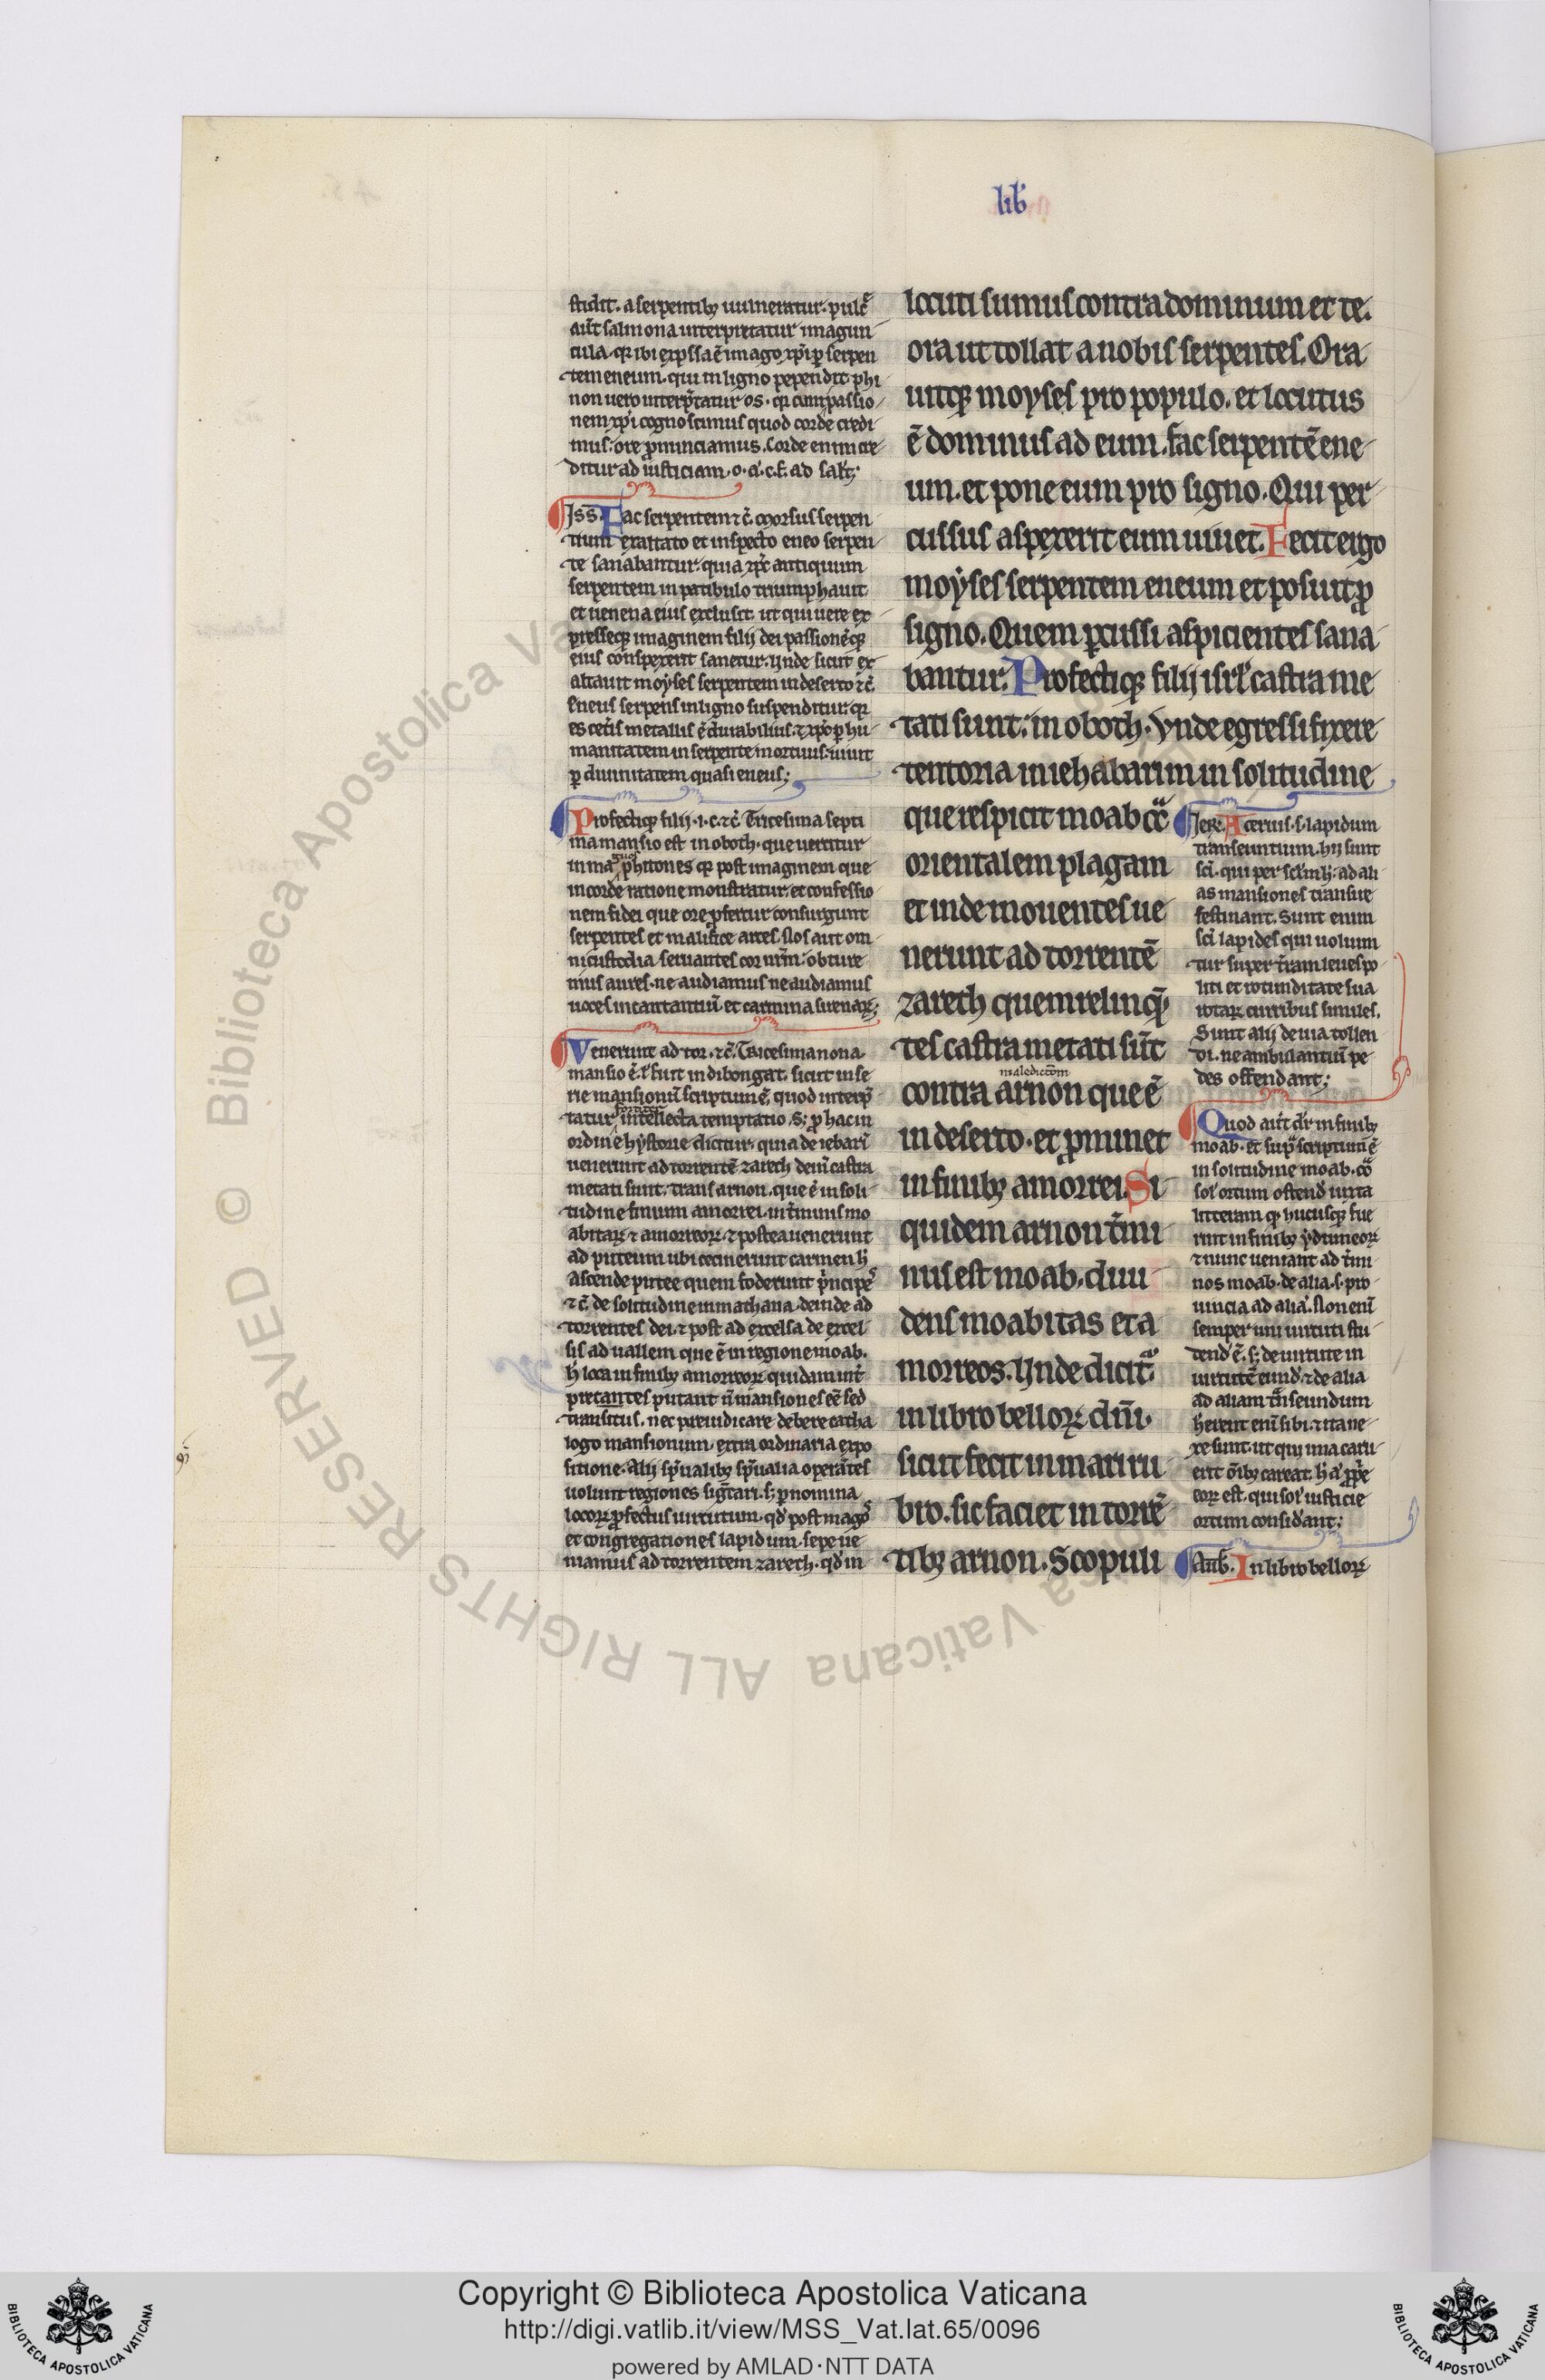 lib̃
stidit. a serpentibꝫ uulneratur. pulcᷓ
aut̃ salmona interpretatur imagun
cula. qr ibi exp̃ssa ẽ imago xp̃i ꝑ serpen
tem eneum. qui in ligno pependit. phi
non uero interp̃tatur os. qr cum passio
nem xp̃i cognoscimus quod corde credi
mus. ore ꝓnunciamus. Corde enim cre
ditur ad iusticiam. o. a. c. f. ad sal̃t;
Jss̃. Fac serpentem ⁊c̃. Morsus serpen
tium exaltato et inspecto eneo serpen
te sanabantur. quia xp̃c antiquum
serpentem in patibulo triumphauit
et uenena eius exclusit. ut qui uere ex
presseqꝫ imaginem filij dei passionẽqꝫ
eius conspexerit sanetur. Vnde sicut ex
altauit moyses serpentem in deserto ⁊c̃.
Eneus serpens in ligno suspenditur. qr
es cet̃is metallis ẽ durabilius. ⁊ xp̃o ꝑ hu
manitatem in serpente mortuus. uiuit
ꝑ diuinitatem quasi eneus;
Profectiqꝫ filij. i. c. ⁊c̃. Tricesima septi
ma mansio est in oboth. que uertitur
in magos phitones qr post imaginem que
in corde ratione monstratur. et confessio
nem fidei que ore ꝓfertur consurgunt
serpentes et malifice artes. Nos aut om
ni custodia seruantes cor nr̃m. obture
mus aures. ne audiamus ne audiamus
uoces incantantiũ. et carmina suenaꝝ;
Venerunt ad tor. ⁊c̃. Tricesima nona
mansio ẽ. l̃ fuit in dibongat. sicut in se
rie mansionũ scriptum ẽ. quod interp̃
tatur fortiter intellecta temptatio. Sꝫ ꝓ hac in
ordine hystorie dicitur. quia de iebari
uenerunt ad torrentẽ zareth. dein castra
metati sunt. trans arnon. que ẽ in soli
tudine finium amorrei. in t̃minis mo
abitaꝝ ⁊ amorreoꝝ. ⁊ postea uenerunt
ad puteum ubi cecinerunt carmen h̃
ascende putee quem foderunt p̃ncipes
⁊c̃. de solitudine in mathana. deinde ad
torrentes dei. ⁊ post ad excelsa de excel
sis ad uallem que ẽ in regione moab.
h̃ loca in finibꝫ amorreoꝝ quidam int̃
pretantes putant ñ mansiones eẽ sed
transitus. nec preiudicare debere catha
logo mansionum. extra ordinaria expo
sitione. Alij sp̃ualibꝫ sp̃ualia operãtes
uolunt regiones sig̃tari. sꝫ ꝑ nomina
locoꝝ ꝓfectus uirtutum. qd̃ post magos
et congregationes lapidum. sepe ue
niamus ad torrentem zareth. qd̃ in
locuti sumus contra dominum et te.
ora ut tollat a nobis serpentes. Ora
uitqꝫ moyses pro populo. et locutus
ẽ dominus ad eum. fac serpentẽ ene
um. et pone eum pro signo. Qui per
cussus aspexerit eum uiuet. Fecit ergo
moyses serpentem eneum et posuit ꝓ
signo. Quem ꝑcussi aspicientes sana
bantur. Profectiqꝫ filij isrl̃ castra me
tati sunt. in oboth. Vnde egressi fixere
tentoria in iehabarim in solitudine
que respicit moab cõ
orientalem plagam
et inde mouentes ue
nerunt ad torrentẽ
zareth quem relinqꝫ
tes castra metati sũt
maledictõm
contra arnon que ẽ
in deserto. et ꝓminet
in finibꝫ amorrei. Si
quidem arnon t̃mi
nus est moab. diui
dens moabitas et a
morreos. Vnde dicitᷣ
in libro belloꝝ dñi.
sicut fecit in mari ru
bro. sic faciet in torrẽ
tibꝫ arnon. Scopuli
Jer̃. Aceruus. s. lapidum
transeuntium. hij sunt
sc̃i. qui per sclm̃ h̃. ad ali
as mansiones transire
festinant. Sunt enim
sc̃i lapides qui uoluun
tur super t̃ram leues po
liti et rotunditate sua
rotaꝝ curribus similes.
Sunt alij de uia tollen
di. ne ambulantiũ pe
des offendant;
Quod aut̃ dr̃ in finibꝫ
moab. et supᷓ scriptum ẽ
in solitudine moab. cõ
sol̃ ortum ostend̃ iuxta
litteram qꝫ hucusqꝫ fue
runt in finibꝫ ydumeoꝝ
⁊ nunc ueniant ad t̃mi
nos moab. de alia. s. pro
uincia ad aliã. Non eni
semper uni uirtuti stu
dend̃ ẽ. sꝫ de uirtute in
uirtutẽ eund̃. ⁊ de alia
ad aliam tᷓnseundum
herent eni sibi. ⁊ ita ne
xe sunt. ut qui una caru
erit õibꝫ careat. h̃ a ꝓpe
eoꝝ est. qui sol̃ iusticie
ortum considant;
Aub̃. In libro belloꝝ
Biblioteca Apostolica Vaticana ALL RIGHTS RESERVED ©
Copyright © Biblioteca Apostolica Vaticana
http://digi.vatlib.it/view/MSS_Vat.lat.65/0096
powered by AMLAD·NTT DATA
BIBLIOTECA APOSTOLICA VATICANA
BIBLIOTECA APOSTOLICA VATICANA